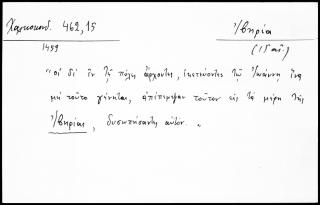 Χαλκοκονδ. 462,15
Ἰβηρία
1459
(15 αἰ.)
"οἱ δὲ ἐν τῇ πόλει ἄρχοντες, ἱκετεύοντες τῷ Ἰωάννῃ ἵνα
μὴ τοῦτο γένηται, ἀπέπεμψαν τοῦτον εἰς τὰ μέρη τῆς
Ἰβηρίας, δυσωπήσαντες αὐτόν."